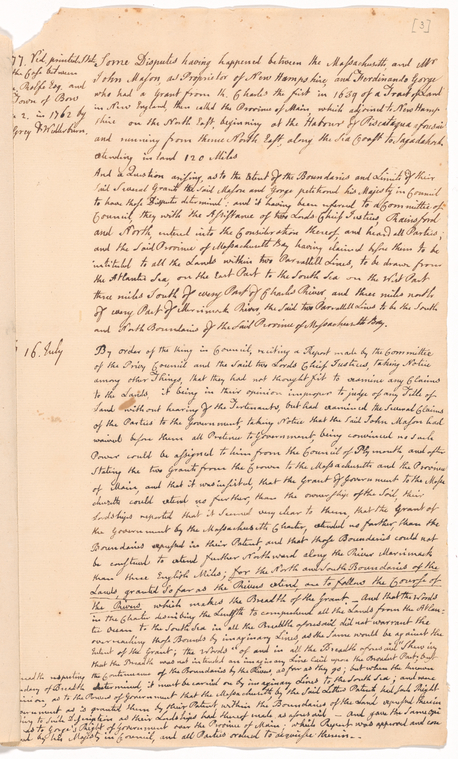 [3]
77. Vid. printed State
the Case between
Rolfe Esq. and
Town of Bow
2. in 1762 by
Grey & Wedderburn,
Some Disputes having happened between the Massachusetts and Mr
John Mason, as Proprietor of New Hampshire, and Ferdinando Gorge
who had a Grant from K. Charles the first in 1639 of a Tract of Land
in New England, then called the Province of Main which adjoined to New Hamp
shire on the North East, beginning at the Harbour of Piscataqua aforesaid
and running from thence North East, along the Sea Coast to Sagadahock,
extending in land 120 Miles
And a Question arising, as to the Extent of the Boundaries and Limits of their
said several Grants the said Mason and Gorge petitioned his Majesty in Council
to have those Disputes determined: and it having been referred to a Committee of
Council, they with the Assistance of two Lords Chief Justices Rainsford
and North, entered into the Consideration thereof, and heard all Parties,
and the said Province of Massachusetts Bay having claimed before them to be
intituled to all the Lands within two Parrallell Lines, to be drawn from
the Atlantic Sea, on the East Part to the South Sea on the West Part
three miles South of every Part of Charles River and three miles north
of every Part of Merrimack River, the said two Parrallell Lines to be the South
and North Boundaries of the said Province of Massachusetts Bay.
16. July
By order of the King in Council, reciting a Report made by the Committee
of the Privy Council and the said two Lords Chief Justices, taking Notice
among other Things, that they had not thought fit to examine any Claims
to the Lands, it being in their opinion improper to judge of any Title of
Land without hearing of the Tertenants, but had examined the several Claims
of the Parties to the Government, taking Notice that the said John Mason had
waived before them all Pretence to Government, being convinced no such
Power could be assigned to him from the Council of Plymouth, and after
Stating the two Grants from the Crown to the Massachusetts and the Province
of Main, and that it was insisted, that the Grant of Government to the Massa
chusetts could extend no further, than the ownership of the Soil, their
Lordships reported that it seemed very clear to them, that the Grant of
the Government by the Massachusetts Charter, extend no farther, than the
Boundaries expressed in their Patent, and that those Boundaries could not
be construed to extend further Northward along the River Merrimack
than three English Miles; for the North and South Boundaries of the
Lands, granted so far as the Rivers extend are to follow the Course of
the Rivers, which makes the Breadth of the Grant. And that the Words
in the Charter describing the Length to comprehend all the Lands from the Atlan-
tic Ocean to the South Sea in all the Breadth aforesaid did not warrant the
overreaching those Bounds by imaginary Lines as the same would be against the
Intent of the Grant; the Words "of and in all the Breadth aforesaid" shewing
that the Breadth was not intended an imaginary Line laid upon the Broadest Part, but
the Continuance of the Boundaries by the Rivers as far as they go; but when the known
determined, it must be carried on by imaginary Lines to the South Sea; and were
respecting
dary of Breadth
as to the Power of Government that the Massachusetts by the said Letters Patents had such Right
ernment as is granted them by their Patent within the Boundaries of the Land expressed therein
ing to such Description as their Lordships had thereof made as aforesaid. and gave the same opi
as to Gorge's Right of Government over the Province of Main: which Report was approved and con
by his Majesty in Council, and all Parties ordered to acquiesce therein.